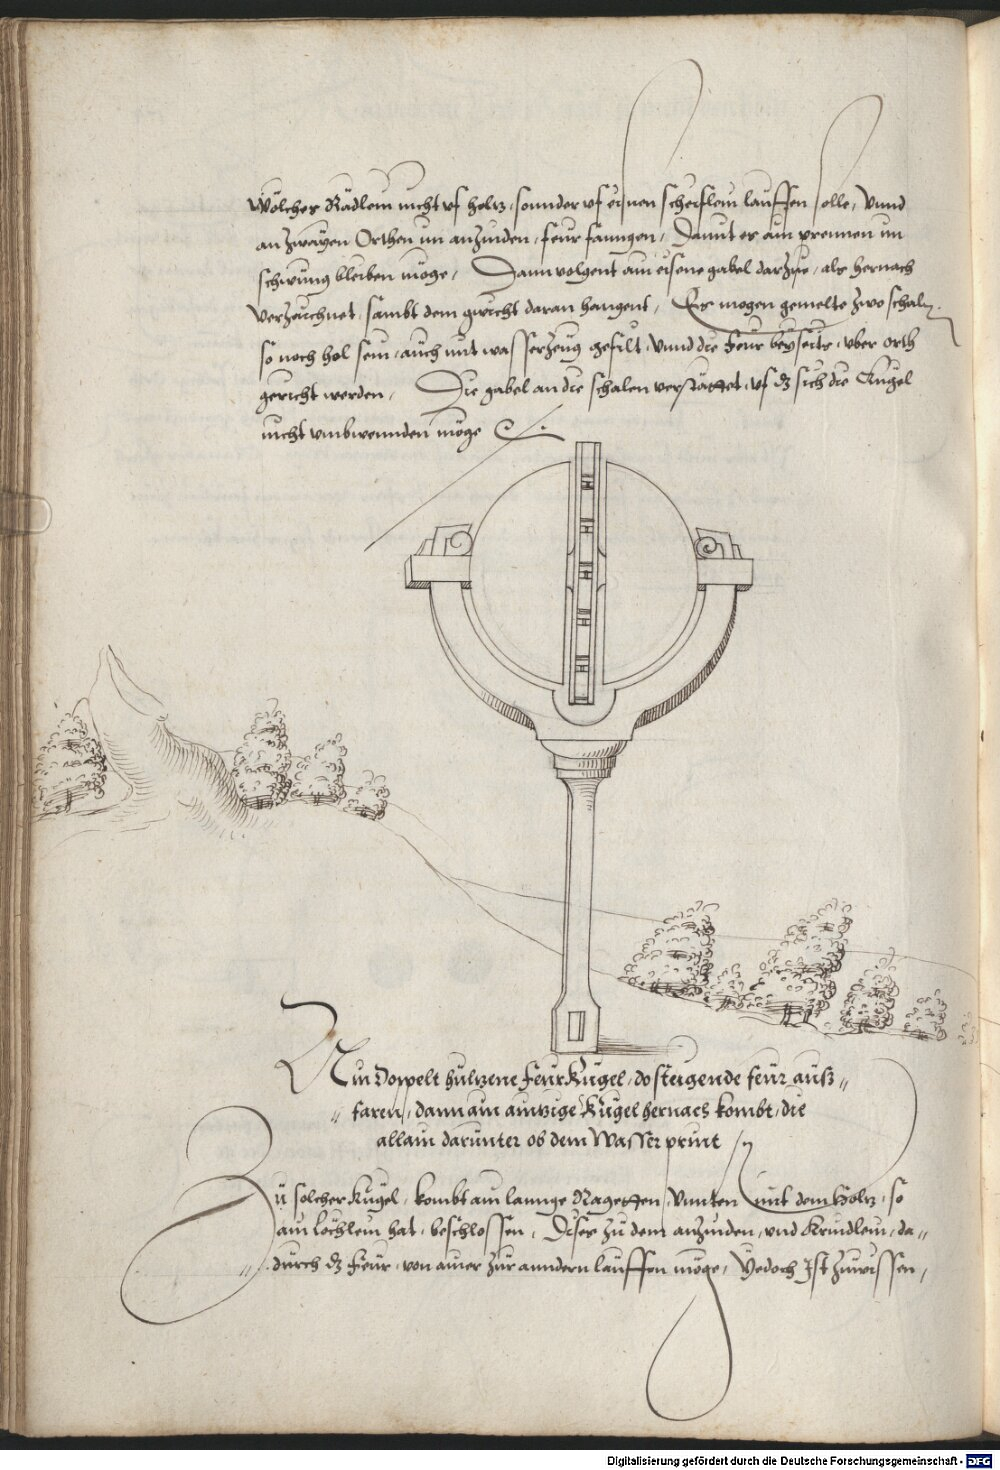 wölches Rädlein nicht vf holtz, sonnder vf eisnen scheiflein lauffen solle, Vnnd
an zwayen Orthen im anzinden, feur fanngen, Damit es am prennen im
schwung bleiben möge, Dann volgent ain eisene gabel darzue, als hernach
verzeichnet, sambt dem gwicht daran hangent, Es mogen gemelte zwo schaln,
so noch hol sein, auch mit wasserzeug gefilt, vnnd die Feur beyseits, vber orth
gericht werden, Die gabel an die schalen verstättet, vf dz sich die Kugel
nicht vmbwennden möge
Ain Doppelt hültzene FeurKugel, do steigende feur auß„
„ faren, dann ain aintzige Kugel hernach kombt, die
allain darunter ob dem Wasser print
Zu solcher Kugel, kombt ain lannge Ragetten, vnnten mit dem Holtz, so
ain löchlein hat, beschlossen, Dises zu dem anzinden, vnd Krindlein, da„
„ durch dz Feur, von ainer zur anndern lauffen möge, Yedoch Ist zuwissen,
Digitalisierung gefördert durch die Deutsche Forschungsgemeinschaft - DFG